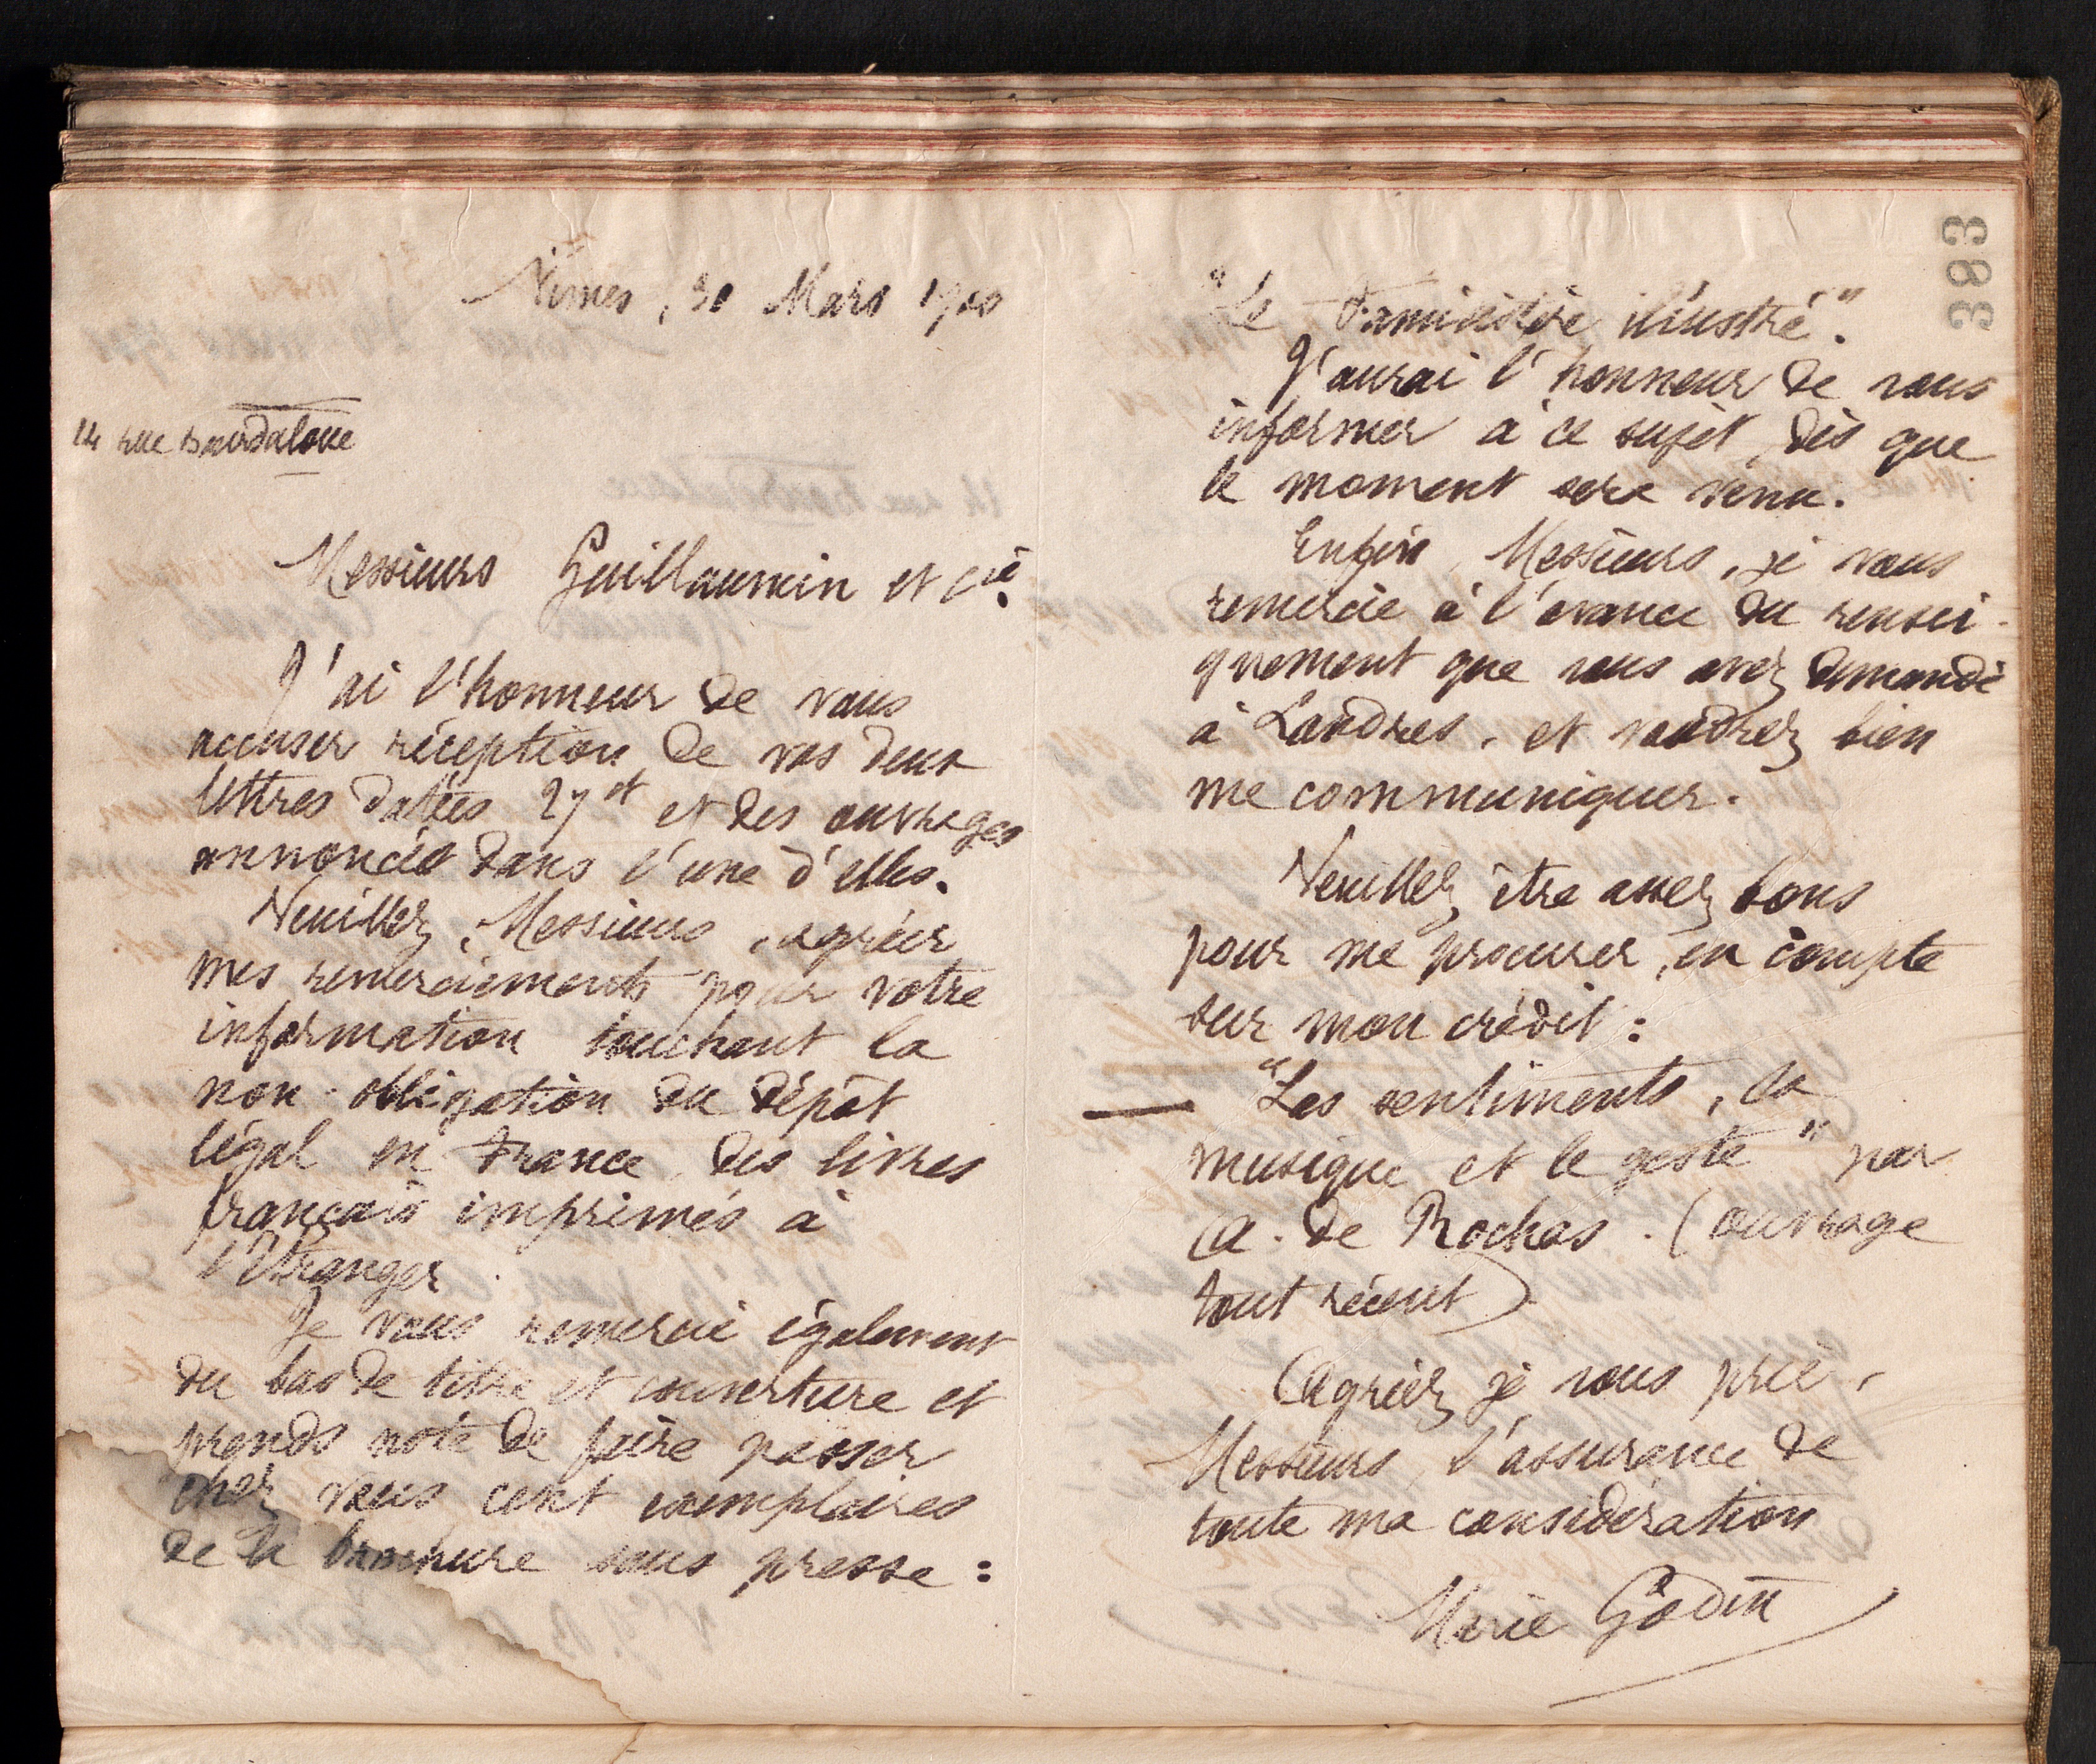 Nîmes, 30 Mars 1900
14 rue Bourdaloue
Messieurs Guillaumin et Cie.
J'ai l'honneur de vous
accuser réception de vos deux
lettres datées 27 ct et des ouvrages
annoncés dans l'une d'elles.
Veuillez, Messieurs, agréer
mes remerciements pour votre
information touchant la
non-obligation du dépôt
légal en France des livres
français imprimés à
l'Etranger.
Je vous remercie également
du bas de titre et couverture et
prends note de faire passer
chez vous cent exemplaires
de la brochure sous presse :
"Le Familistère illustré".
J'aurai l'honneur de vous
informer à ce sujet, dès que
le moment sera venu.
Enfin, Messieurs, je vous
remercie à l'avance du rensei-
gnement que vous avez demandé
à Londres, et voudrez bien
me communiquer.
Veuillez être assez bons
pour me procurer, en compte
sur mon crédit :
— "Les sentiments, la
musique et le geste" par
A. de Rochas. (ouvrage
tout récent)
Agréez je vous prie,
Messieurs, l'assurance de
toute ma considération
Marie Godin
383